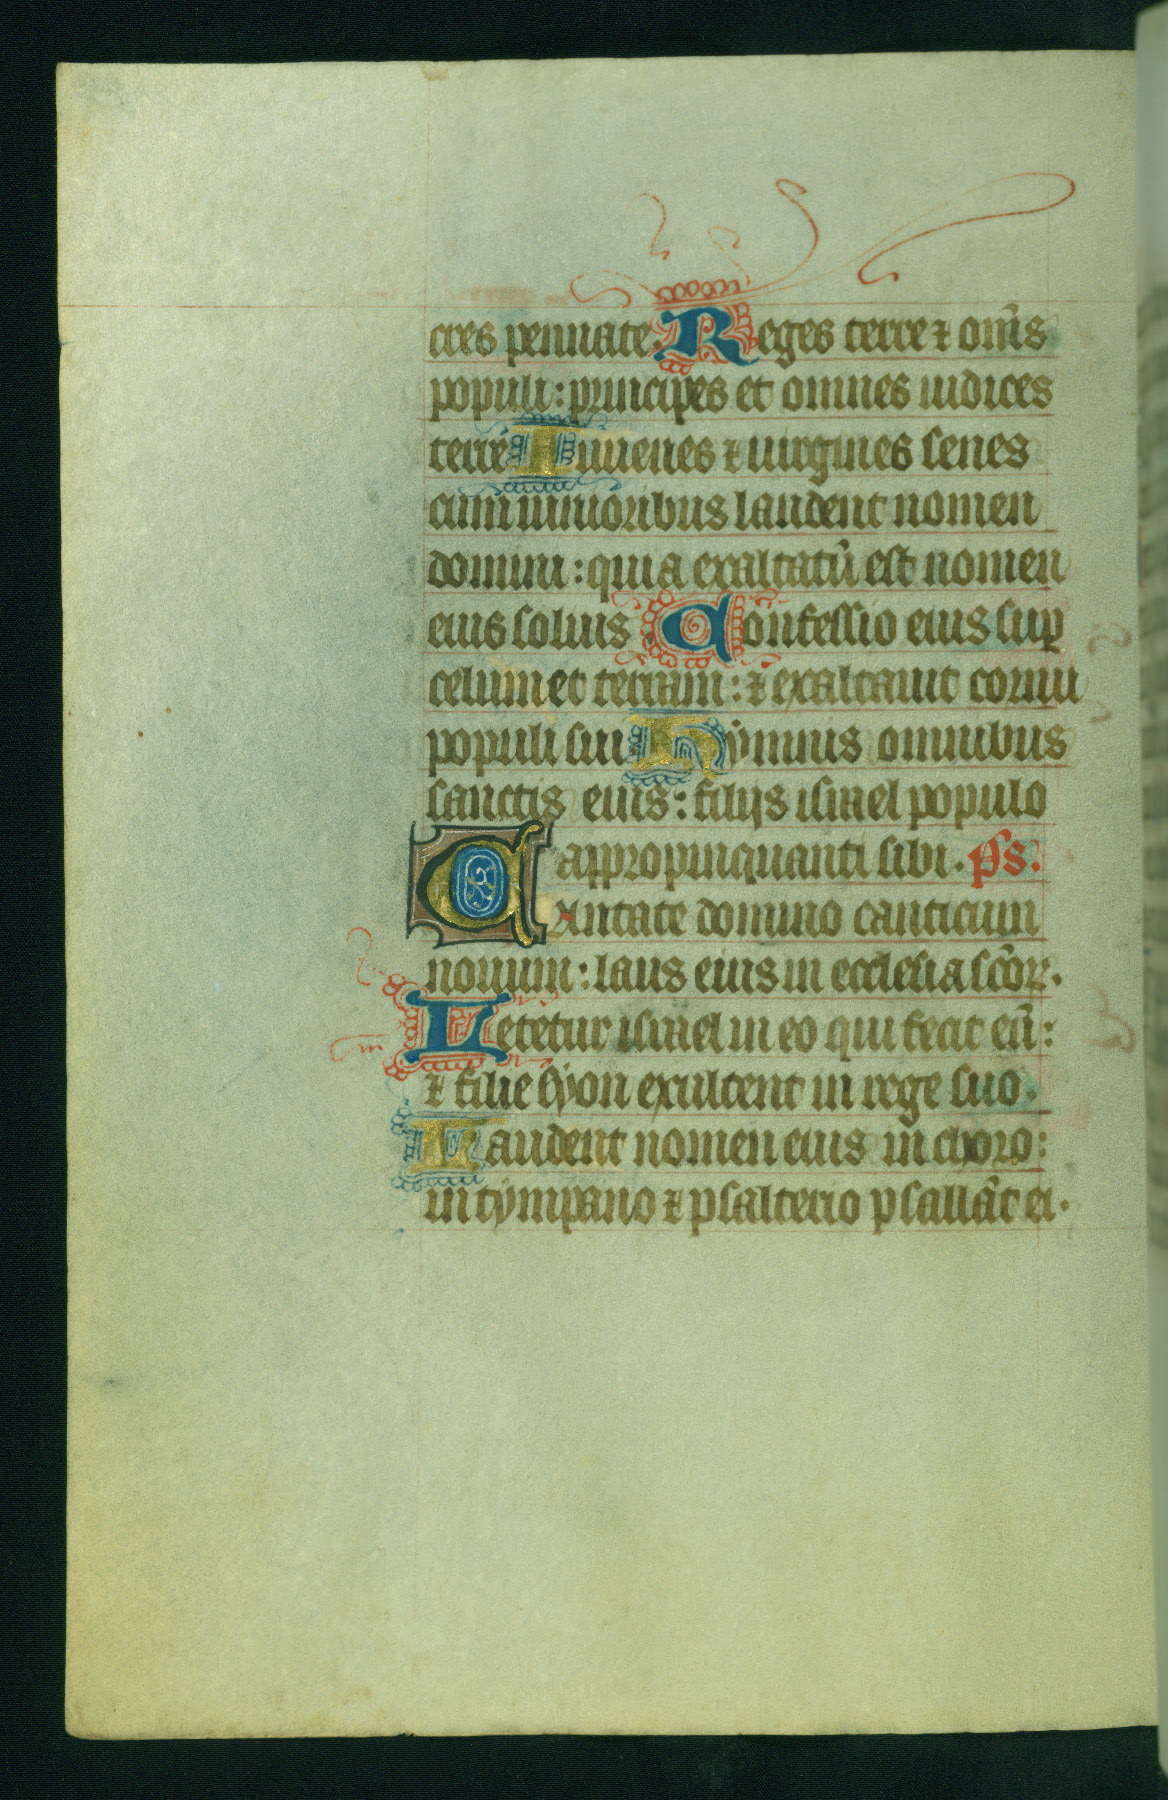 cres pennate. Reges terre ⁊ om̄s
populi : principes et omnes iudices
terre Iuuenes ⁊ uirgines senes
cum iunioribus laudent nomen
domini : quia exaltatū est nomen
eius solius Confessio eius suꝑ
celum et terram : ⁊ exaltauit cornu
populi sui Hÿmnus omnibus
sanctis eius : filijs israel populo
appropinquanti sibi . Ps.
Cantate domino canticum
nouum : laus eius in ecclesia sc̄oꝝ .
Letetur israel in eo qui fecit eū :
⁊ filie sÿon exultent in rege suo .
Laudent nomen eius in choro :
in tÿmpano ⁊ psalterio psallāt ei .